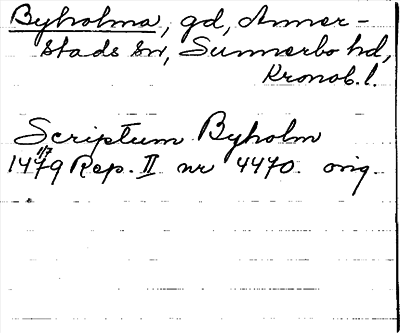 Byholma, gd, Anner-
stads sn, Sunnerbo hd,
Kronob. l.
Scriptum Byholm
1479 1/7 Rep. II nr 4470. orig.